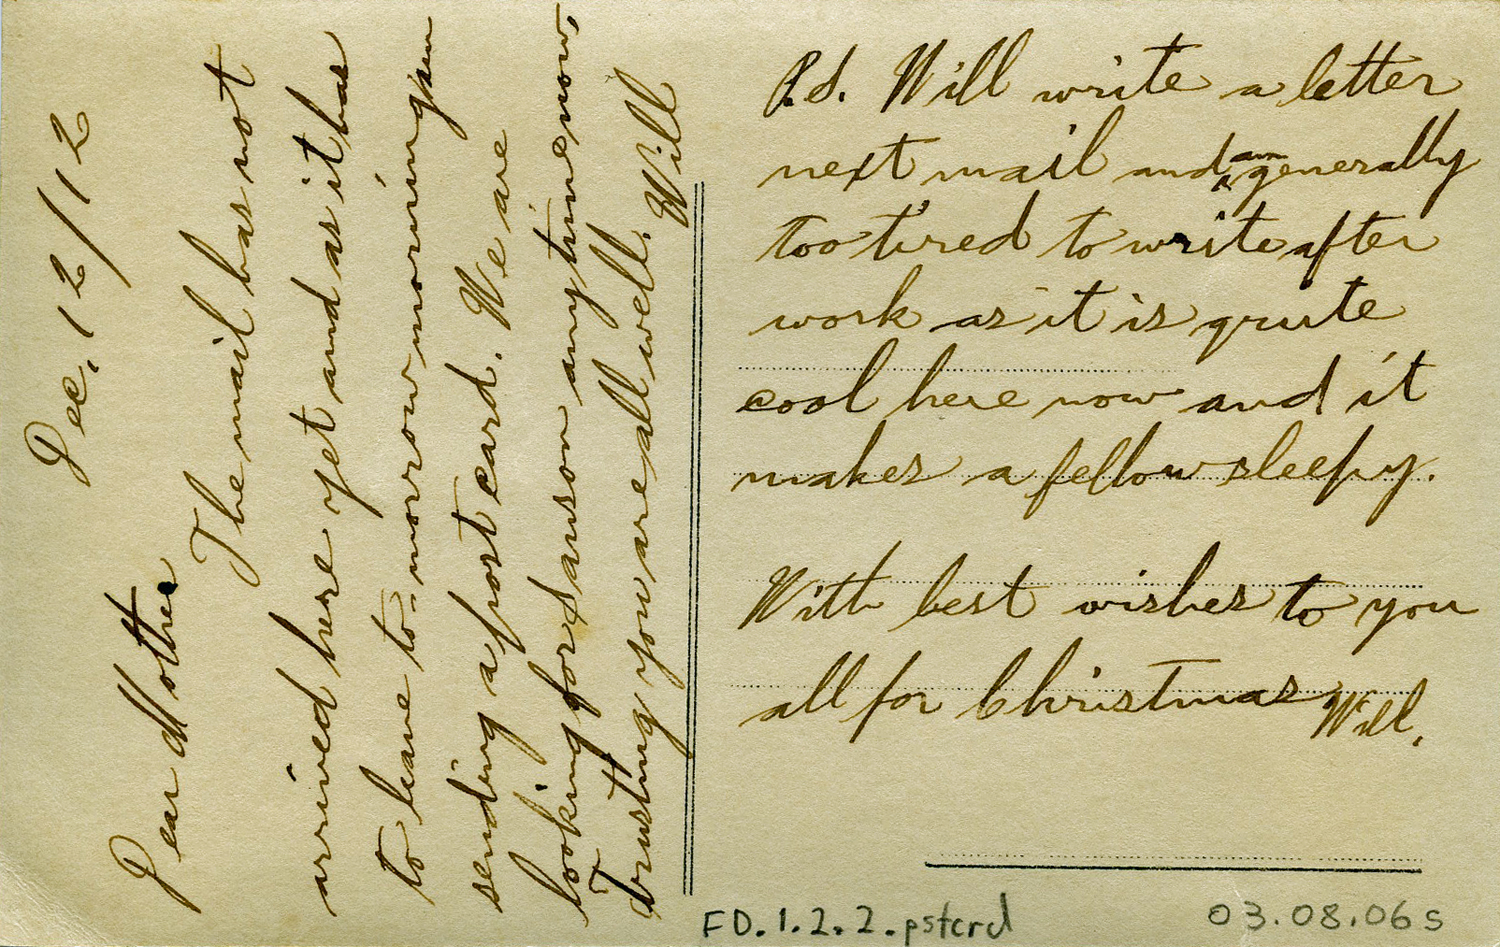 Dec. 12/12
Dear Mother
The mail has not
arrived here yet and as it has
to leave to-morrow morning am
sending a post card. We are
looking for Sanson anytime now,
Trusting you are all well. Will
P.S. Will write a letter
next mail and am generally
too tired to write after
work as it is quite
cool here now and it
makes a fellow sleepy.
With best wishes to you
all for Christmas.
Will.
FD.1.2.2.pstcrd
03.08.06s